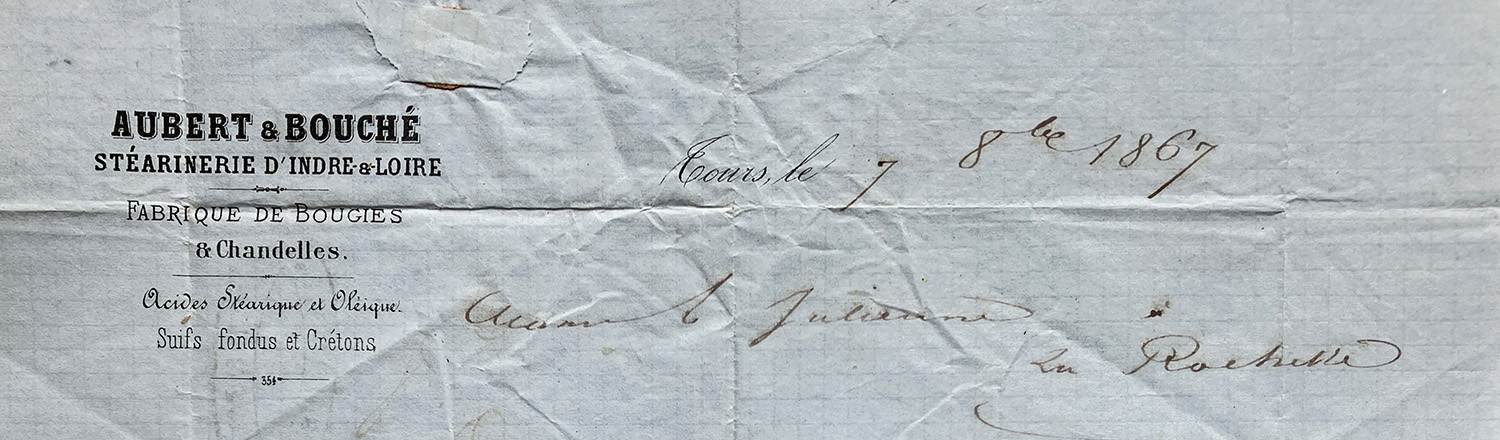 AUBERT & BOUCHÉ
STÉARINERIE D'INDRE-&-LOIRE
FABRIQUE DE BOUGIES
& Chandelles.
Acides Stéarique et Oléique.
Suifs fondus et Crétons
354
Tours, le 7 8bre 1867
Julienne à
La Rochelle